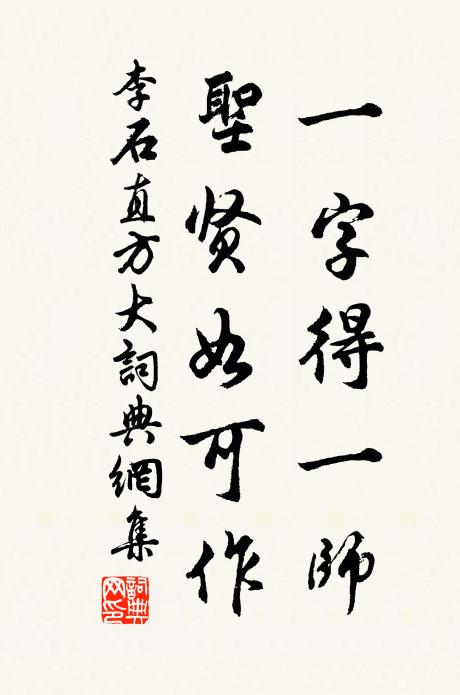 一字得一師
聖贤如可作
李石直方大詞典網集
詞典网印